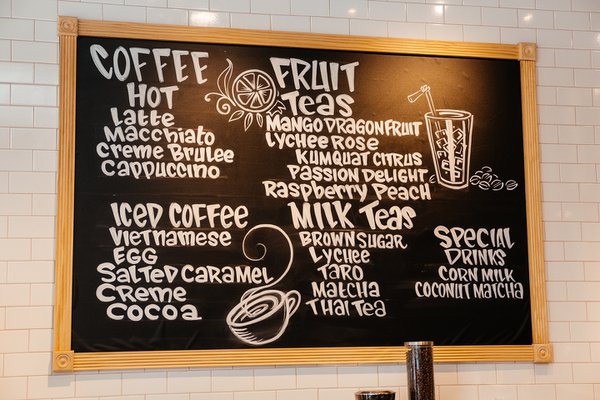 COFFEE
HOT
Latte
Macchiato
Creme Brulee
Cappuccino
ICED COFFEE
Vietnamese
EGG
Salted Caramel
Creme
Cocoa
FRUIT
Teas
Mango Dragonfruit
Lychee Rose
Kumquat Citrus
Passion Delight
Raspberry Peach
Milk Teas
Brown Sugar
Lychee
Taro
Matcha
Thai Tea
Special
Drinks
Corn Milk
Coconut Matcha